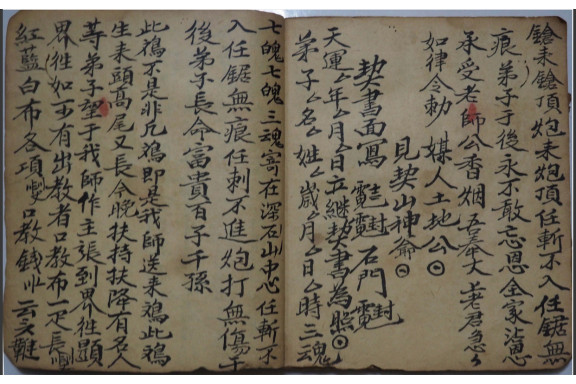 鎗來鎗頂炮來炮頂任斬不入任鋸無
痕弟子于後永不敢忘恩全家沾恩
承受老師公香烟吾奉太上老君急急
如律令勅 媒人土地公
見契山神爺
契書面寫 石門 封
天運 年 月 日立繼契書為照
弟子 名 姓 歲 月 日 時三魂
七魄七魄三魂寄在深石山中心任斬不
入任鋸無痕任刺不進炮打無傷于
後弟子長命富貴百子千孫
此鴉不是非凡鴉即是我師送來鴉此鴉
生來頭高尾又長今晚扶持扶降有名人
等弟子望于我師作主張到界牲顯
界牲如 有出教者 教布一疋長
紅藍白布各項 口教錢 云文